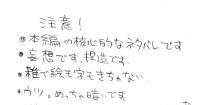 注意！
◎本編の核心的なネタバレです
◎妄想です、捏造です。
◎雑で絵も字もきちゃない
◎ウツ。めっちゃ暗いです